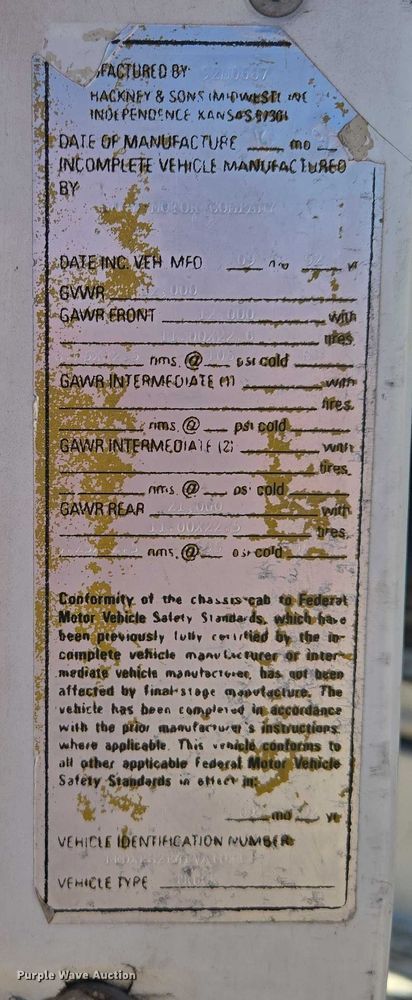 FACTURED BY
HACKNEY & SONS (MIDWEST) INC
INDEPENDENCE KANSAS 67301
DATE OF MANUFACTURE ___ mo __
INCOMPLETE VEHICLE MANUFACTURED
BY
MOTOR COMPANY
DATE INC. VEH MFD 09 mo 82 yr
GVWR
GAWR FRONT 12,000 with
11.00X22.5 tires,
rims, @ 105 psi cold
GAWR INTERMEDIATE (1) with
tires,
rims, @ psi cold
GAWR INTERMEDIATE (2) with
tires,
rims, @ psi cold
GAWR REAR 21,000 with
11.00X22.5 tires,
rims, @ psi cold
Conformity of the chassis-cab to Federal
Motor Vehicle Safety Standards, which have
been previously fully certified by the in-
complete vehicle manufacturer or inter-
mediate vehicle manufacturer, has not been
affected by final-stage manufacture. The
vehicle has been completed in accordance
with the prior manufacturer's instructions,
where applicable. This vehicle conforms to
all other applicable Federal Motor Vehicle
Safety Standards in effect in:
mo yr
VEHICLE IDENTIFICATION NUMBER:
VEHICLE TYPE
Purple Wave Auction